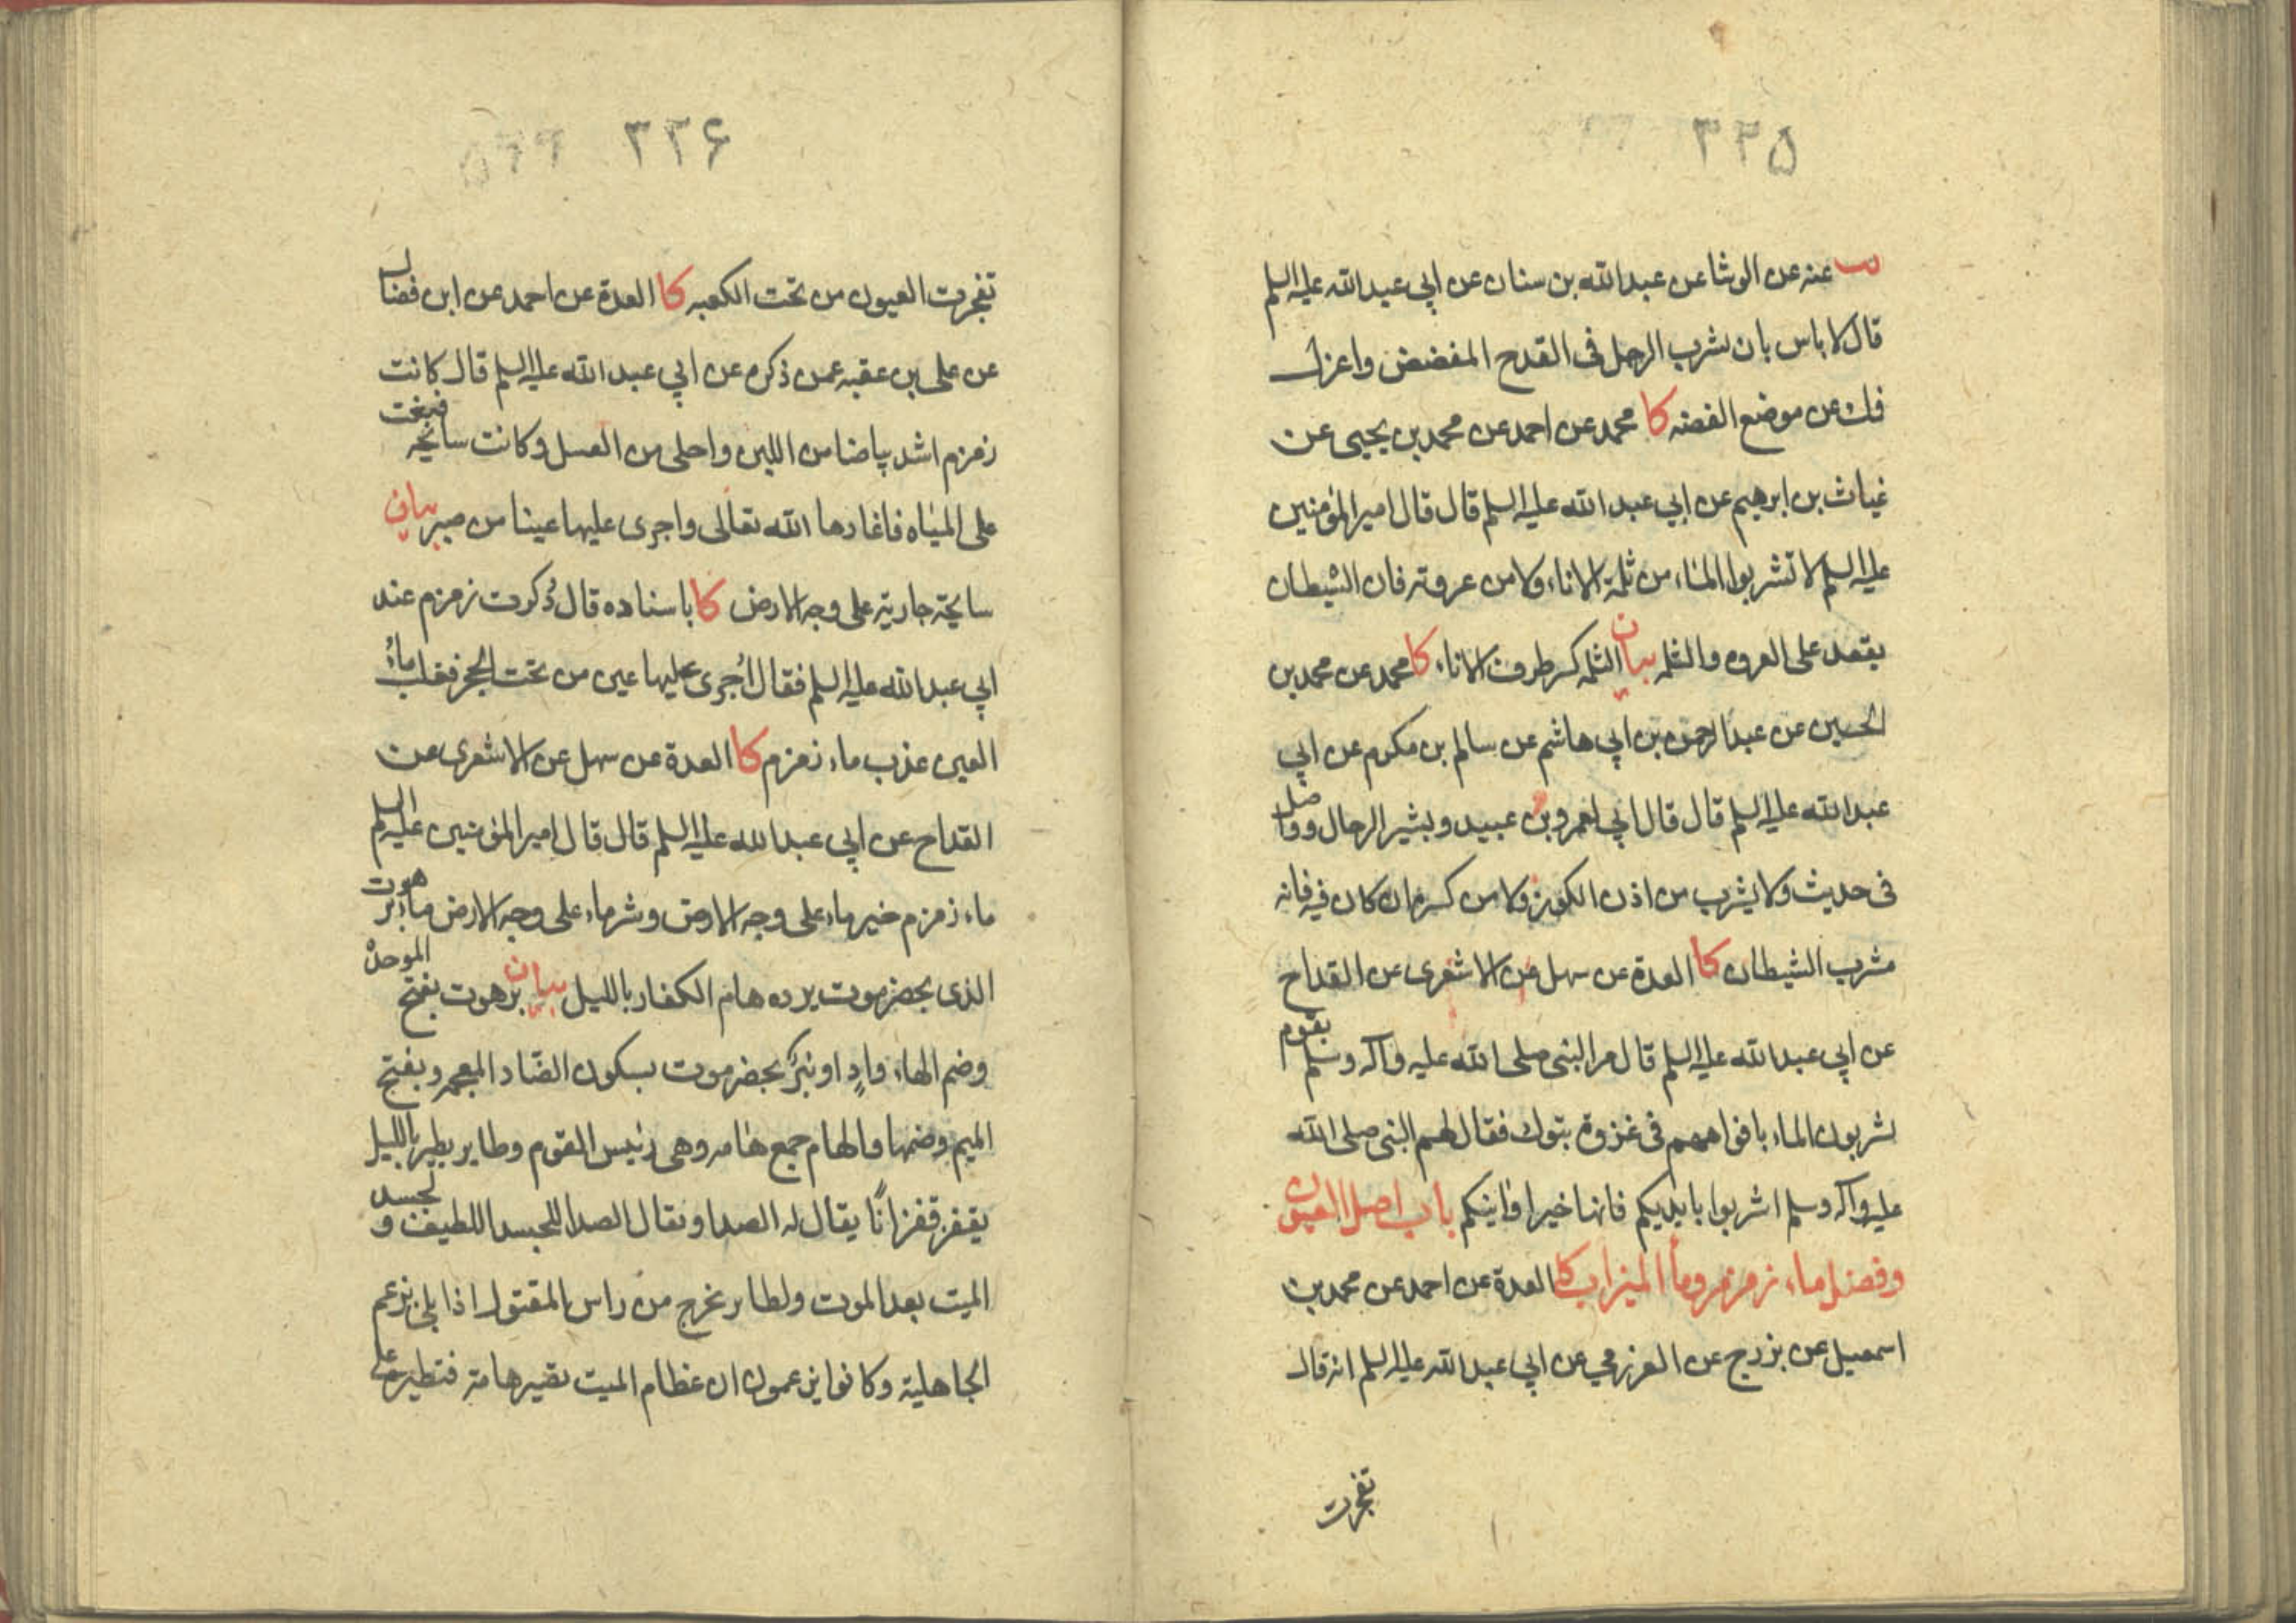 ۳۲۵
عنه عن الوشا عن عبدالله بن سنان عن ابي عبدالله عليه السلم
قال لا باس بان يشرب الرجل فى القدح المفضض واعزل
فك عن موضع الفضه كا محمد عن احمد عن محمد بن يحيى عن
غياث بن ابرهيم عن ابي عبد الله عليه السلم قال قال امير المؤمنين
عليه السلم لا تشربوا الماء من ثلمة الاناء ولا من عروته فان الشيطان
يقعد على العروه والثلمه بيان الثلمه كسر طرف الاناء كا محمد عن محمد بن
الحسين عن عبد الرحمن بن ابي هاشم عن سالم بن مكرم عن ابي
عبد الله عليه السلم قال قال ابي لعمرو بن عبيد وبشير الرحال وواصل
فى حديث ولا يشرب من اذن الكوز ولا من كسره ان كان فيه فانه
مشرب الشيطان كا العدة عن سهل عن الاشعرى عن القداح
عن ابي عبد الله عليه السلم قال مر النبى صلى الله عليه وآله وسلم بقوم
يشربون الماء بافواههم فى غزوة تبوك فقال لهم النبى صلى الله
عليه وآله وسلم اشربوا بايديكم فانها خير اوانيكم باب اصل العيون
وفضل ماء زمزم وماء الميزاب كا العدة عن احمد عن محمد بن
اسمعيل عن بزرج عن العرزمي عن ابي عبد الله عليه السلم انه قال
تفجرت
۳۲۶
تفجرت العيون من تحت الكعبه كا العدة عن احمد عن ابن فضال
عن على بن عقبه عمن ذكره عن ابي عبد الله عليه السلم قال كانت
زمزم اشد بياضا من اللبن واحلى من العسل وكانت سايحه فبغت
على المياه فاغارها الله تعالى واجرى عليها عينا من صبر بيان
سايحة جارية على وجه الارض كا باسناده قال ذكرت زمزم عند
ابي عبد الله عليه السلم فقال اُجرى عليها عين من تحت الحجر فغلب ماءُ
العين عذب ماء زمزم كا العدة عن سهل عن الاشعرى عن
القداح عن ابي عبد الله عليه السلم قال قال امير المؤمنين عليه السلم
ماء زمزم خير ماء على وجه الارض وشر ماء على وجه الارض ماء برهوت
الذى بحضرموت يرده هام الكفار بالليل بيان برهوت بفتح الموحدة
وضم الهاء وادٍ او بئر بحضرموت بسكون الضاد المعجمه وبفتح
الميم وضمها والهام جمع هامه وهى رئيس القوم وطاير يطير بالليل
يقفز قفزانًا يقال له الصدا ويقال الصدا للجسد اللطيف ولجسد
الميت بعد الموت ولطاير يخرج من راس المقتول اذا بلى بزعم
الجاهلية وكانوا يزعمون ان عظام الميت تصير هامة فتطير على